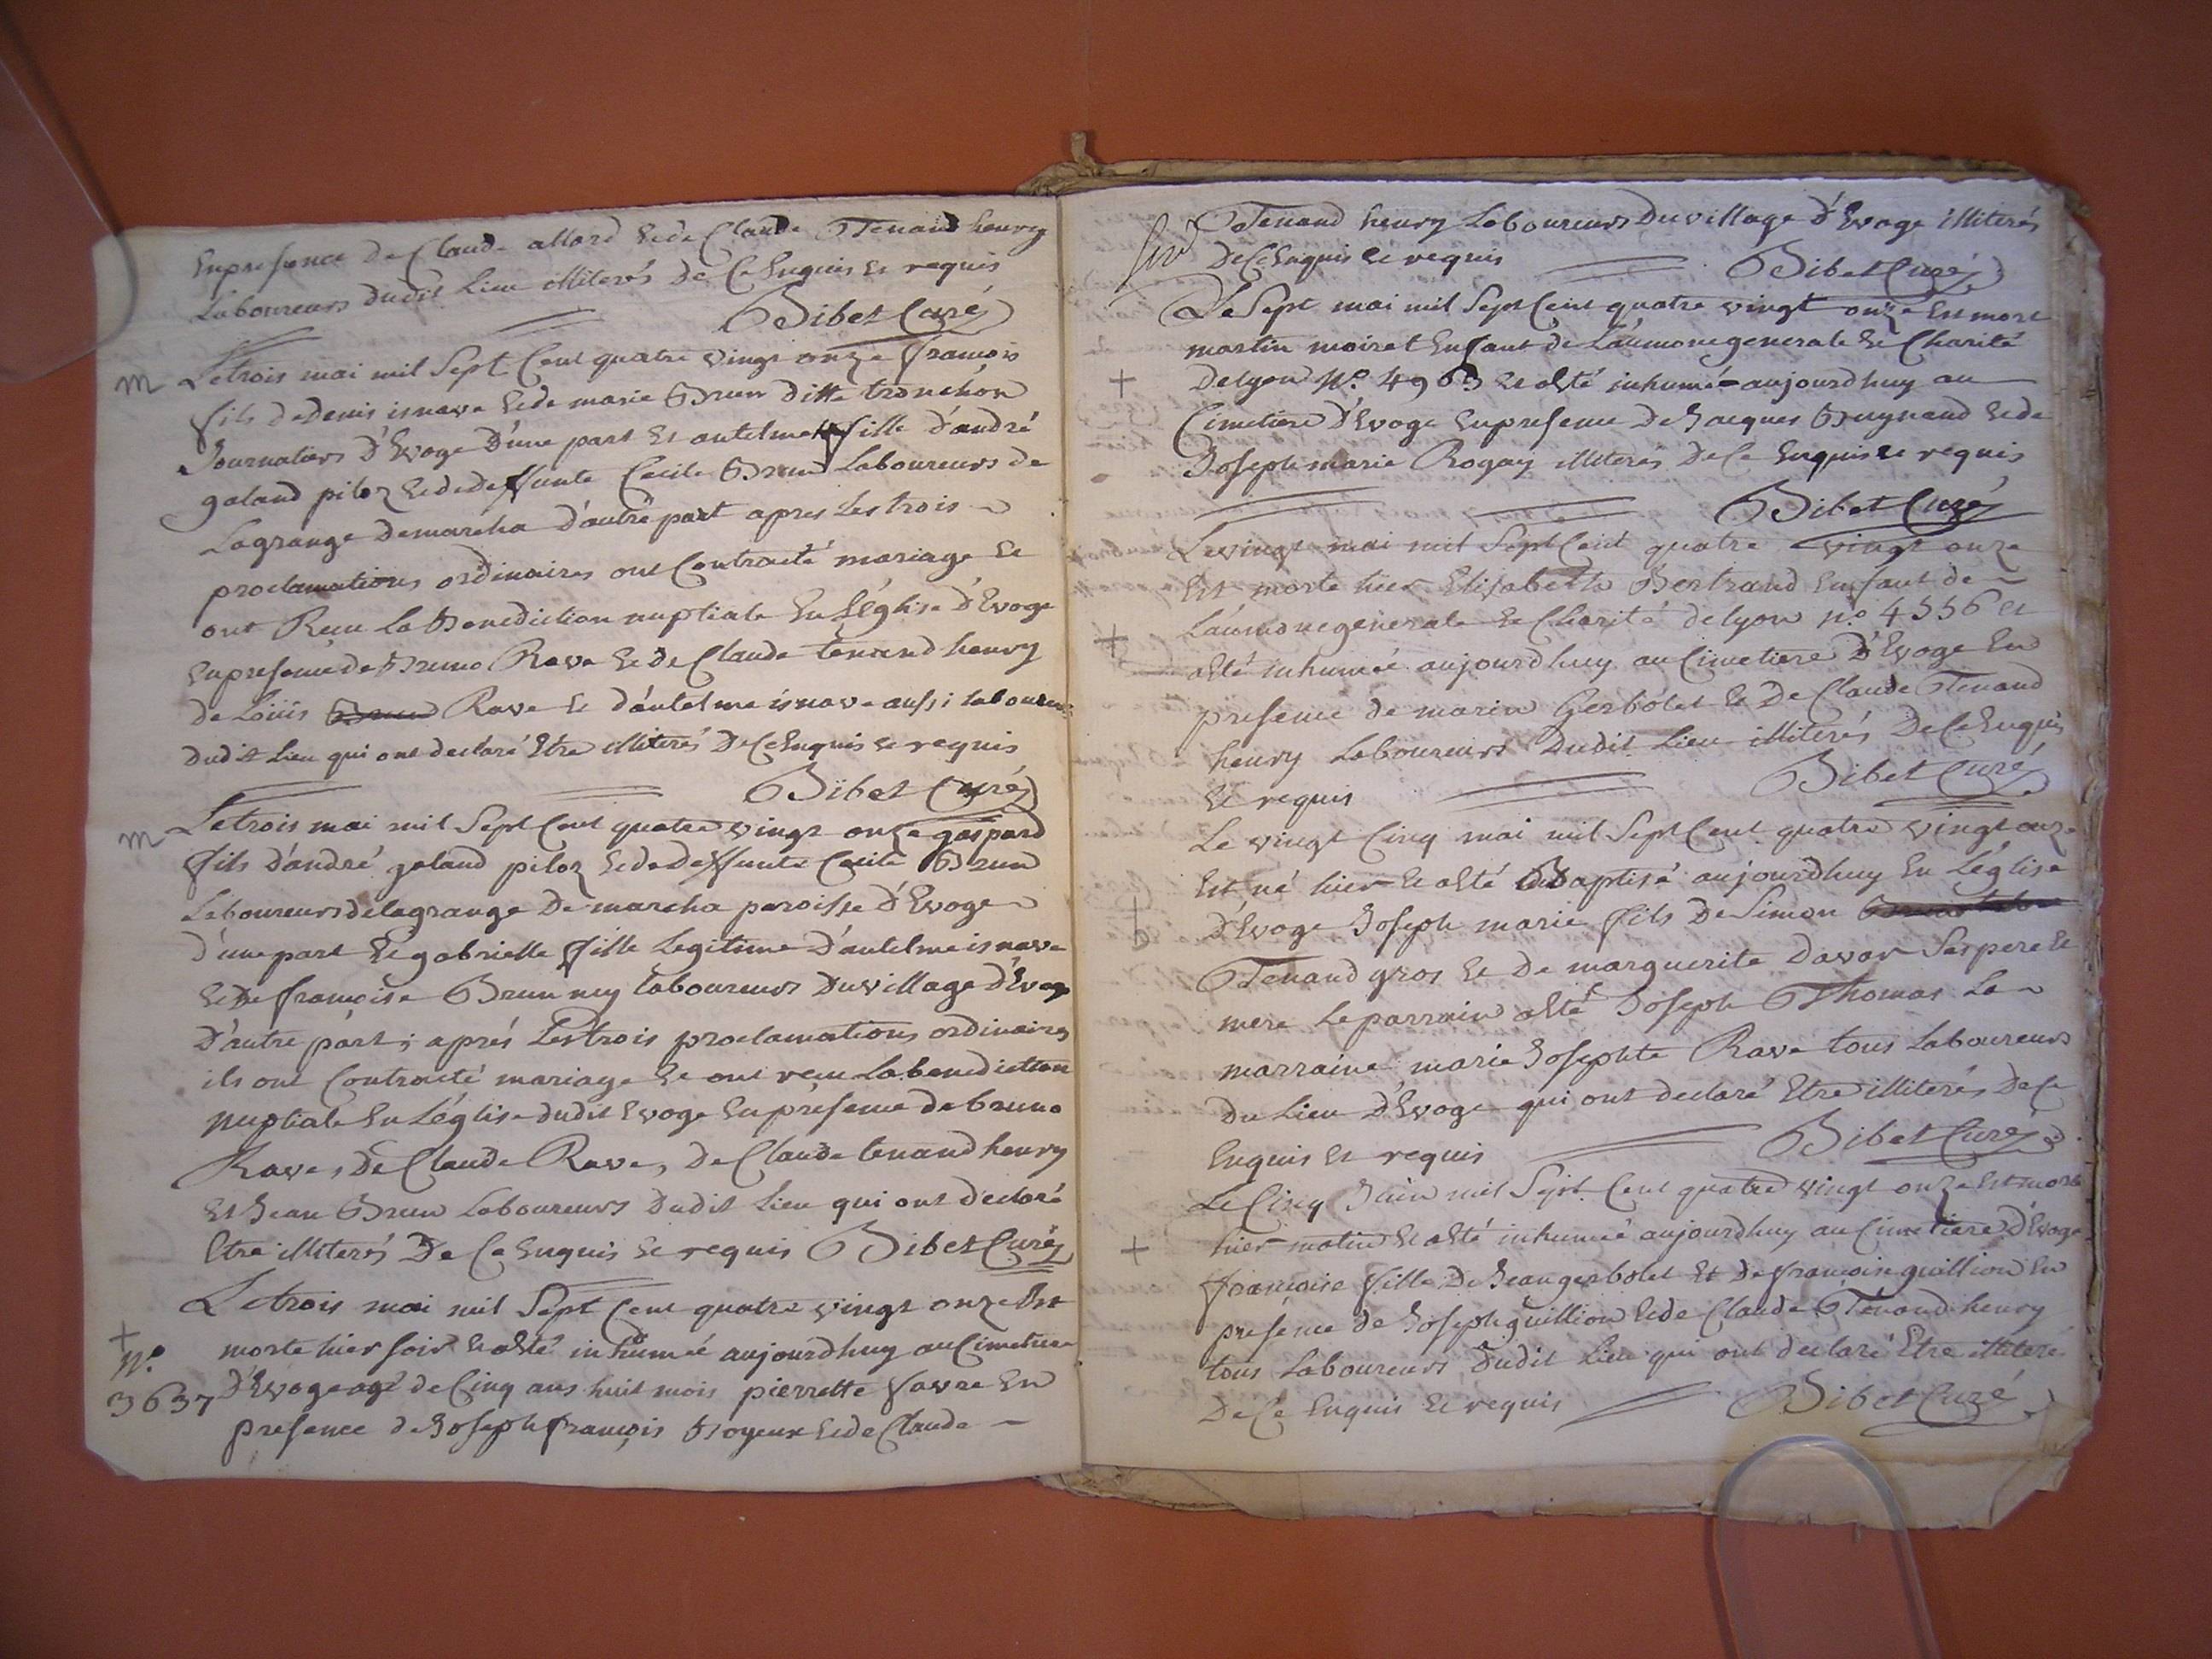 En presence de Claude allard et de Claude Tenand henry
Laboureurs dudit Lieu illiterés de Ce Enquis et requis
Bibet Curé
m Le trois mai mil Sept Cent quatre vingt onze francois
fils de denis isnave et de marie Brun ditte tronchon
Journaliers d'Evoge d'une part et antelmette fille d'andré
galand piloz et de deffunte Cecile Brun Laboureurs de
Lagrange demarcha d'autre part apres Les trois
proclamations ordinaires ont Contracté mariage et
ont Reçu La Benediction nuptiale En l'église d'Evoge
en presence de Bruno Rave et de Claude tenand henry
de Loüis Brun Rave et d'antelme isnave aussi laboureurs
dudit Lieu qui ont declaré Etre illiterés de Ce Enquis et requis
Bibet Curé
m Le trois mai mil Sept Cent quatre vingt onze gaspard
fils d'andré galand piloz et de deffunte Cecile Brun
Laboureurs de lagrange de marcha paroisse d'Evoge
d'une part et gabrielle fille Legitime d'antelme isnave
et de francoise Brun ney laboureurs du village d'Evoge
d'autre part; aprés Les trois proclamations ordinaires
ils ont Contracté mariage et ont reçu La benediction
nuptiale En l'église dudit Evoge En présence de bruno
Rave, de Claude Rave, de Claude tenand henry
et Jean Brun Laboureurs dudit Lieu qui ont declaré
Etre illiterés de Ce Enquis et requis Bibet Curé
Le trois mai mil Sept Cent quatre vingt onze Est
+ morte hier soir et a été inhumée aujourdhuy au Cimetiere
N.o 3637 d'Evoge agé de Cinq ans huit mois pierrette favre En
presence de Joseph françois Boyeux et de Claude
Tenand henry Laboureurs du village d'Evoge illiterés
de Ce Enquis et requis Bibet Curé
Le Sept mai mil Sept Cent quatre vingt onze Est mort
martin moiret Enfant de L'aumone generale et Charité
+ de lyon N.o 4963 et a été inhumé aujourdhuy au
Cimetiere d'Evoge En presence de Jacques Buynand et de
Joseph marie Rogay illiterés de Ce Enquis et requis
Bibet Curé
Le vingt mai mil Sept Cent quatre vingt onze
Est morte hier Elisabeth Bertrand Enfant de
+ L'aumone generale et Charité de lyon n.o 4556 et
a été inhumée aujourdhuy au Cimetiere d'Evoge En
presence de marin Gerbolet et de Claude Tenand
henry Laboureurs dudit Lieu illiterés de Ce Enquis
et requis Bibet Curé
Le vingt Cinq mai mil Sept Cent quatre vingt onze
Est né hier et a été Baptisé aujourdhuy En L'église
d'Evoge Joseph marie fils de Simon
Tenand gros et de marguerite davar Ses pere et
mere Le parrain a été Joseph Thomas La
marraine marie Josephte Rave tous Laboureurs
du Lieu d'Evoge qui ont declaré Etre illiterés de Ce
Enquis et requis Bibet Curé
Le Cinq Juin mil Sept Cent quatre vingt onze Est morte
+ hier matin et a été inhumée aujourdhuy au Cimetiere d'Evoge
francoise fille de Jean gerbolet et de francoise guillion En
presence de Joseph guillion et de Claude Tenand henry
tous Laboureurs dudit Lieu qui ont declaré Etre illiteré
de Ce Enquis et requis Bibet Curé